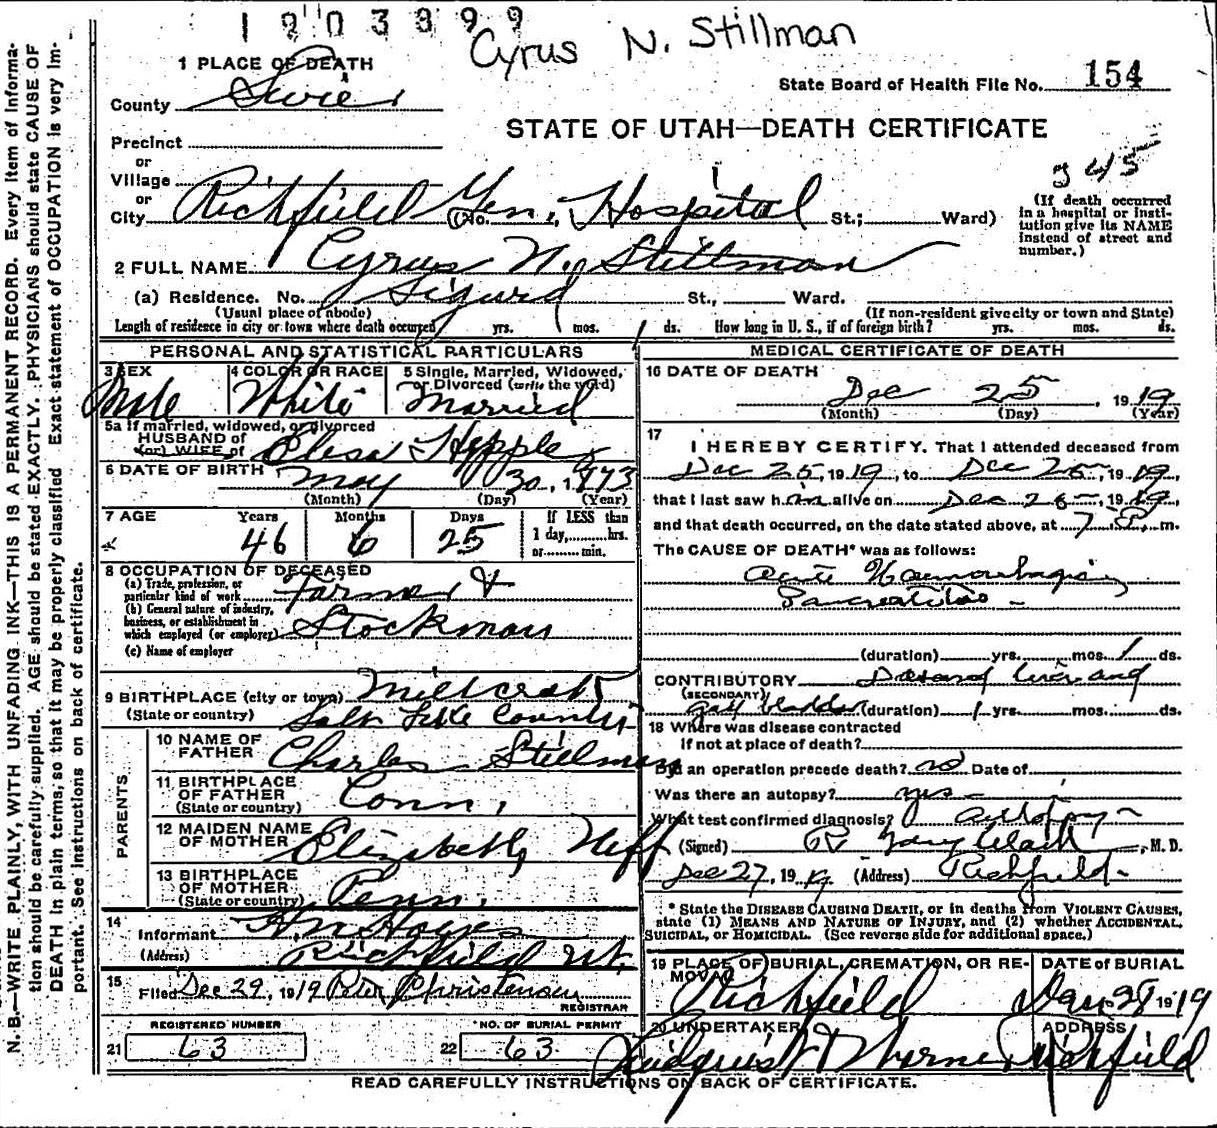 1903899
Cyrus N. Stillman
1 PLACE OF DEATH
State Board of Health File No. 154
County Sevier
STATE OF UTAH—DEATH CERTIFICATE
Precinct
or
Village
or
City Richfield Gen. Hospital (No. St.; Ward)
(If death occurred in a hospital or institution give its NAME instead of street and number.)
2 FULL NAME Cyrus N. Stillman
(a) Residence. No. Sigurd St., Ward.
(Usual place of abode) (If non-resident give city or town and State)
Length of residence in city or town where death occurred yrs. mos. 1 ds. How long in U. S., if of foreign birth? yrs. mos. ds.
PERSONAL AND STATISTICAL PARTICULARS
3 SEX Male
4 COLOR OR RACE White
5 Single, Married, Widowed, or Divorced (write the word) Married
5a If married, widowed, or divorced
HUSBAND of
(or) WIFE of Elisa Hepple
6 DATE OF BIRTH May 30, 1873
(Month) (Day) (Year)
7 AGE Years 46 Months 6 Days 25 If LESS than 1 day, hrs. or min.
8 OCCUPATION OF DECEASED
(a) Trade, profession, or particular kind of work Farmer &
(b) General nature of industry, business, or establishment in which employed (or employer) Stockman
(c) Name of employer
9 BIRTHPLACE (city or town) Millcreek
(State or country) Salt Lake County
PARENTS
10 NAME OF FATHER Charles Stillman
11 BIRTHPLACE OF FATHER (State or country) Conn.
12 MAIDEN NAME OF MOTHER Elizabeth Neff
13 BIRTHPLACE OF MOTHER (State or country) Penn.
14 Informant H. N. Hayes
(Address) Richfield Ut.
15 Filed Dec 29, 1919 Peter Christensen
REGISTRAR
REGISTERED NUMBER
21 63
NO. OF BURIAL PERMIT
22 63
MEDICAL CERTIFICATE OF DEATH
16 DATE OF DEATH
Dec 25, 1919
(Month) (Day) (Year)
17 I HEREBY CERTIFY, That I attended deceased from
Dec 25, 1919, to Dec 25, 1919,
that I last saw him alive on Dec 25, 1919,
and that death occurred, on the date stated above, at 7 P. m.
The CAUSE OF DEATH* was as follows:
Acute Haemorrhagic
Pancreatitis
(duration) yrs. mos. 1 ds.
CONTRIBUTORY Diseased liver and
(SECONDARY)
gall bladder (duration) 1 yrs. mos. ds.
18 Where was disease contracted
if not at place of death?
Did an operation precede death? no Date of
Was there an autopsy? yes
What test confirmed diagnosis? autopsy
(Signed) M. D.
Dec 27, 1919 (Address) Richfield
* State the DISEASE CAUSING DEATH, or in deaths from VIOLENT CAUSES, state (1) MEANS AND NATURE OF INJURY, and (2) whether ACCIDENTAL, SUICIDAL, or HOMICIDAL. (See reverse side for additional space.)
19 PLACE OF BURIAL, CREMATION, OR REMOVAL Richfield
DATE of BURIAL 28 1919
20 UNDERTAKER
ADDRESS Richfield
READ CAREFULLY INSTRUCTIONS ON BACK OF CERTIFICATE.
N. B.—WRITE PLAINLY, WITH UNFADING INK—THIS IS A PERMANENT RECORD. Every item of information should be carefully supplied. AGE should be stated EXACTLY. PHYSICIANS should state CAUSE OF DEATH in plain terms, so that it may be properly classified. Exact statement of OCCUPATION is very important. See instructions on back of certificate.